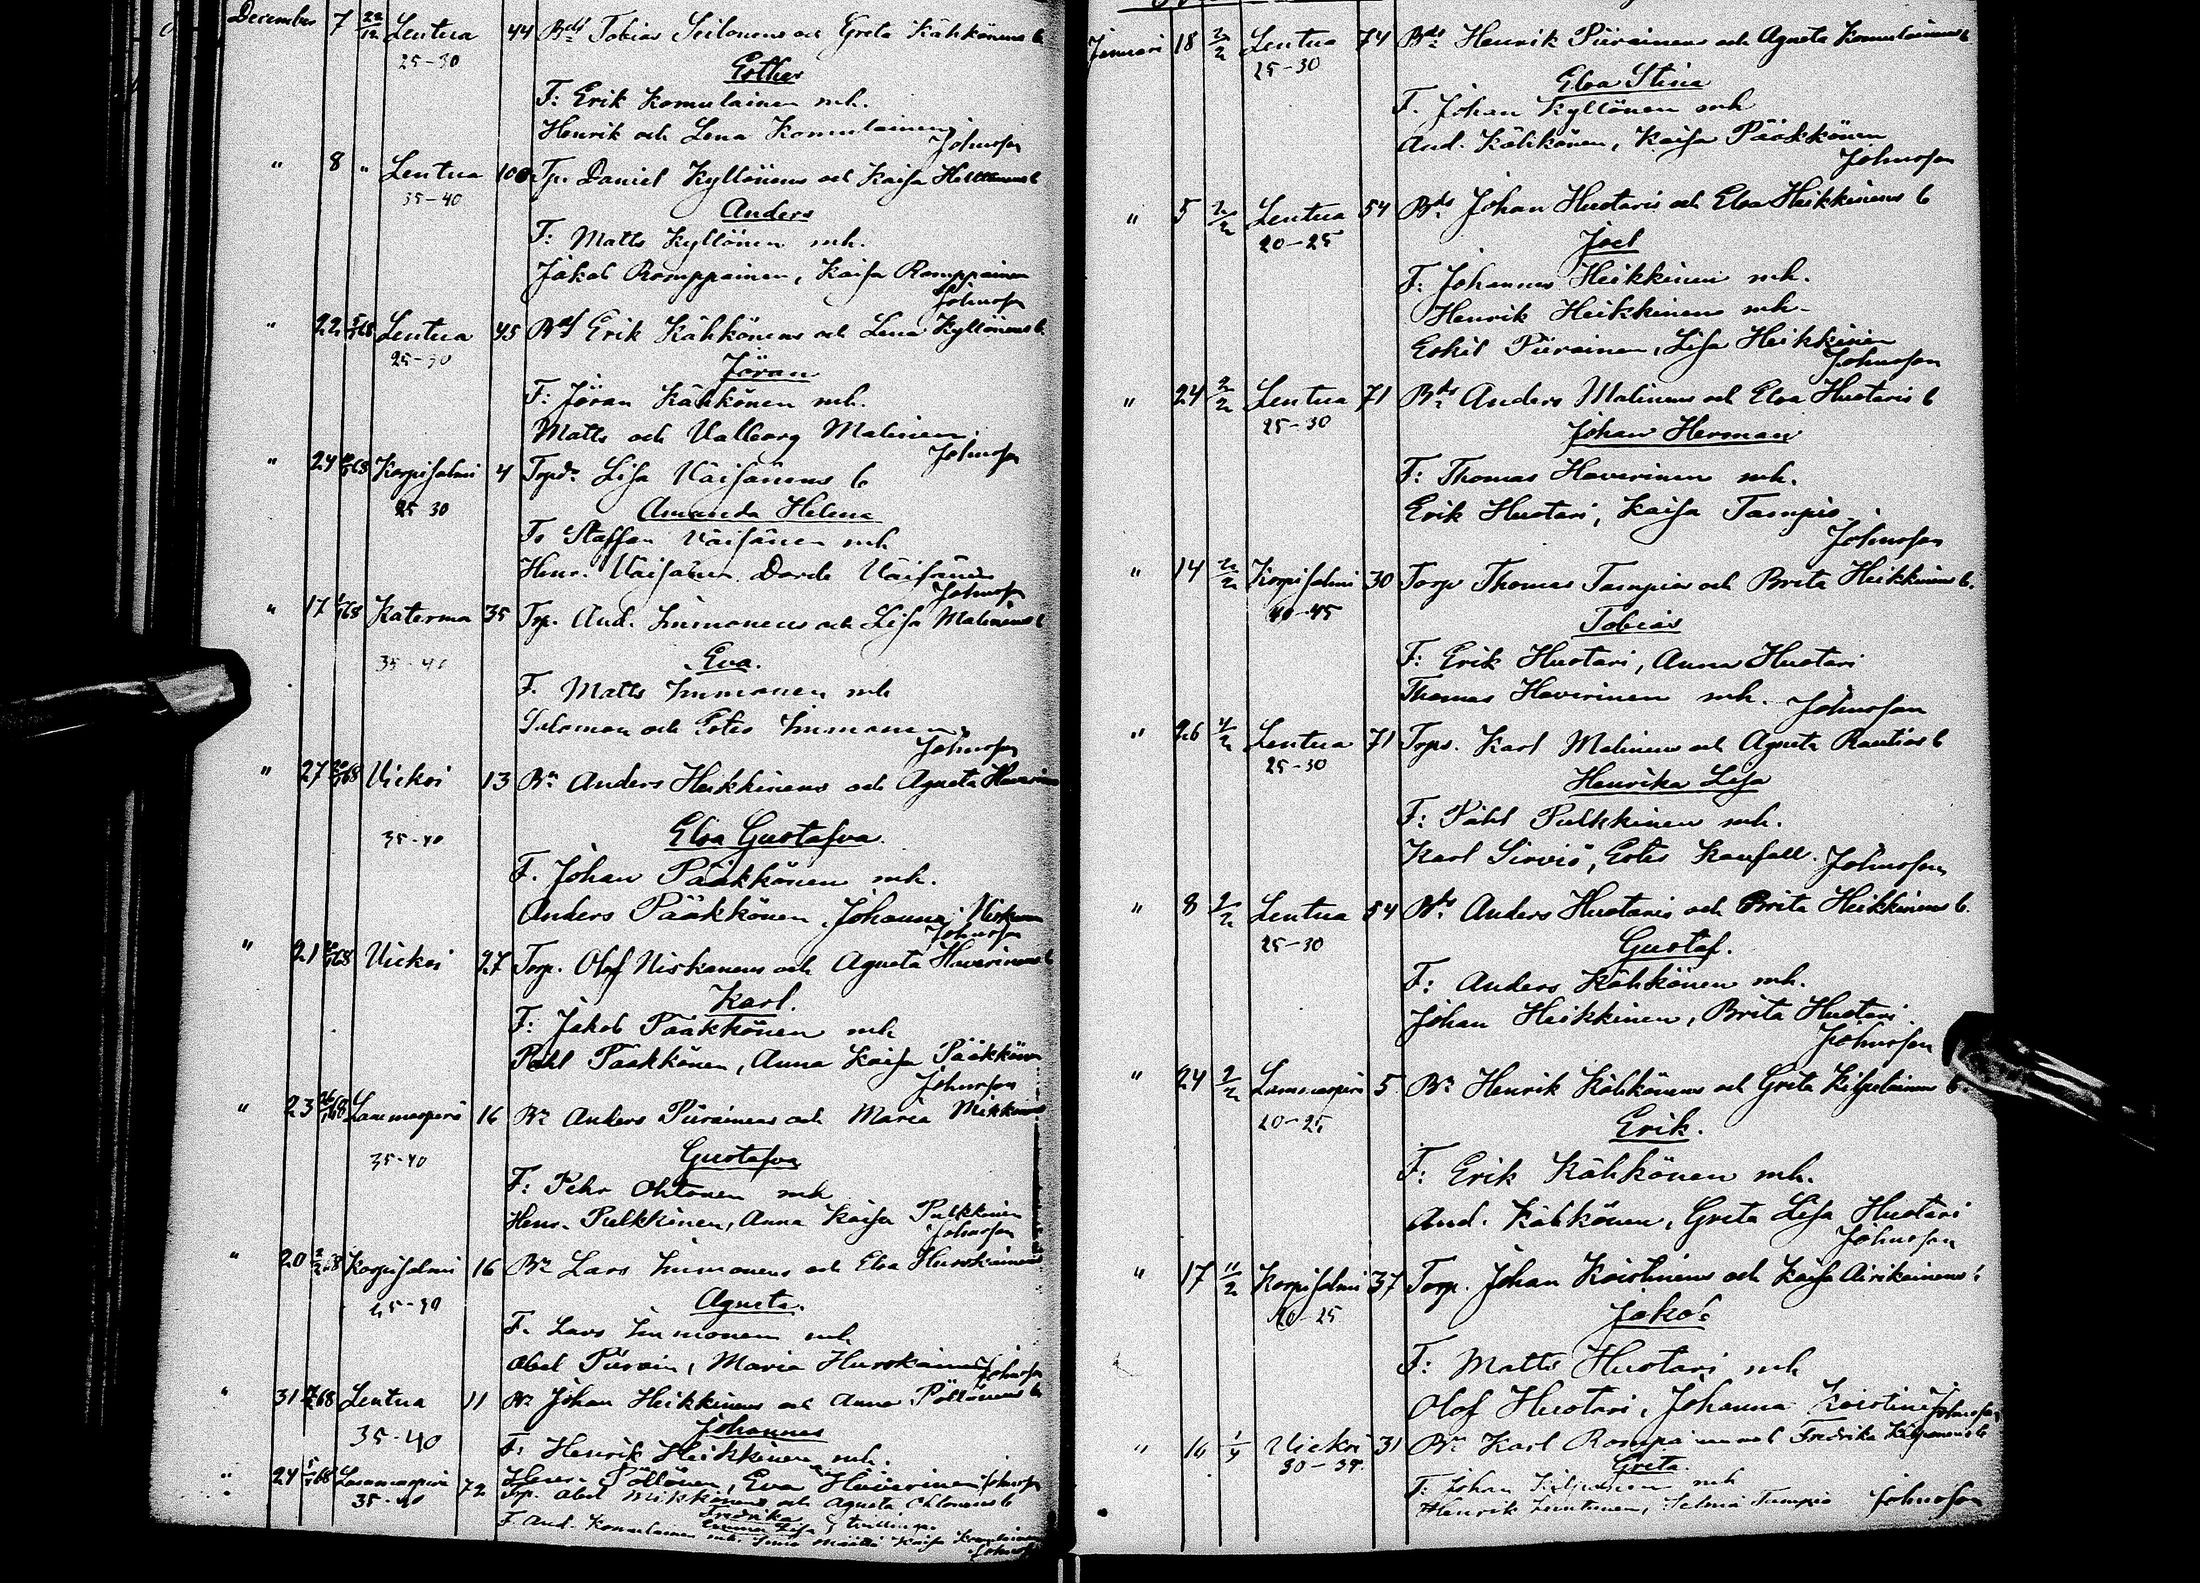 December 7 22/12 Lentua 44 Bdr Tobias Seilonens och Greta Kähkönens b
25-30 Esther
F: Erik Komulainen mh.
Henrik och Lena Komulainen
Johnsson
" 8 " Lentua 100 Tp. Daniel Kyllönens och Kaisa
35-40 Anders
F: Matts Kyllönen mh.
Jakob Romppainen, Kaisa Romppainen
Johnsson
" 22 Lentua 45 Erik Kähkönens och Lena Kyllönens b
25-30 Jöran
F: Jöran Kähkönen mh.
Matts och Valborg Malinen
Johnsson
" 24 Korpisalmi 4 Lisa Väisänens b
25-30 Amanda Helena
F: Staffan Väisänen mh
Henr. Väisänen, Väisänen
Johnsson
" 17 Katerma 35 Trp. And. Immonens och Lisa Malinens b
35-40 Eva.
F. Matts Immonen mh
Salomon och Ester Immonen
Johnsson
" 27 Vieksi 13 Bn Anders Heikkinens och Agneta
35-40 Elva Gustafva
F. Johan Pääkkönen mh.
Anders Pääkkönen, Johanna
Johnsson
" 21 Vieksi 27 Torp. Olof Niskanens och Agneta Haverinens b
Karl.
F: Jakob Pääkkönen mh
Påhl Pääkkönen, Anna Kaisa Pääkkönen
Johnsson
" 23 Lammasperä 16 Bn Anders Piirainens och Maria
35-40 Gustafva
F: Pehr Ohtonen mh
Henr. Pulkkinen, Anna Kaisa Pulkkinen
Johnsson
" 20 Korpisalmi 16 Bn Lars Immonens och Elva Hurskainens
25-30 Agneta.
F. Lars Immonen mh
Abel Piirain, Maria Hurskainen Johnsson
" 31 Lentua 11 Bn Johan Heikkinens och Anna Pöllönens b
35-40 Johannes
F: Henrik Heikkinen mh.
Henr. Pöllönen, Eva Haverinen Johnsson
" 24 Lammasperä 72 Trp. Abel Mikkonens och Agneta Ohtonens b
35-40 Fredrika
Lisa } tvillingar
F. And. Komulainen mh. Kaisa
Johnsson
Januari 18 2/2 Lentua 74 Bdr Henrik Piirainens och Agneta Komulainens b
25-30 Elva Stina
F. Johan Kyllönen mh
And. Kähkönen, Kaisa Pääkkönen
Johnsson
" 5 2/2 Lentua 54 Bdr Johan Huotaris och Elva Heikkinens b
20-25 Joel
F: Johannes Heikkinen mh.
Henrik Heikkinen mh.
Eskil Piirainen, Lisa Heikkinen
Johnsson
" 24 2/2 Lentua 71 Bdr Anders Malinens och Elva Huotaris b
25-30 Johan Herman
F: Thomas Haverinen mh.
Erik Huotari, Kaisa Tampio
Johnsson
" 14 2/2 Korpisalmi 30 Torp Thomas Tampios och Brita Heikkinens b.
40-45 Tobias
F: Erik Huotari, Anna Huotari
Thomas Haverinen mh. Johnsson
" 26 Lentua 71 Torp. Karl Malinens och Agneta Rautios b
25-30 Henrika Lisa
F: Påhl Pulkkinen mh.
Karl Sirviö, Ester Johnsson
" 8 2/2 Lentua 54 Bdr Anders Huotaris och Brita Heikkinens b.
25-30 Gustaf.
F: Anders Kähkönen mh.
Johan Heikkinen, Brita Huotari
Johnsson
" 24 2/2 Lammasperä 5 Bn Henrik Kähkönens och Greta Kilpelainens b
20-25 Erik.
F: Erik Kähkönen mh.
And. Kähkönen, Greta Lisa Huotari
Johnsson
" 17 11/2 Korpisalmi 37 Torp. Johan Koistinens och Kaisa Airikainens b
20-25 Jakob
F: Matts Huotari mh
Olof Huotari, Johanna Koistinen Johnsson
" 16 Vieksi 31 Bn Karl och Fredrika
30-35 Greta.
F: Johan mh
Henrik, Selma Tampio Johnsson